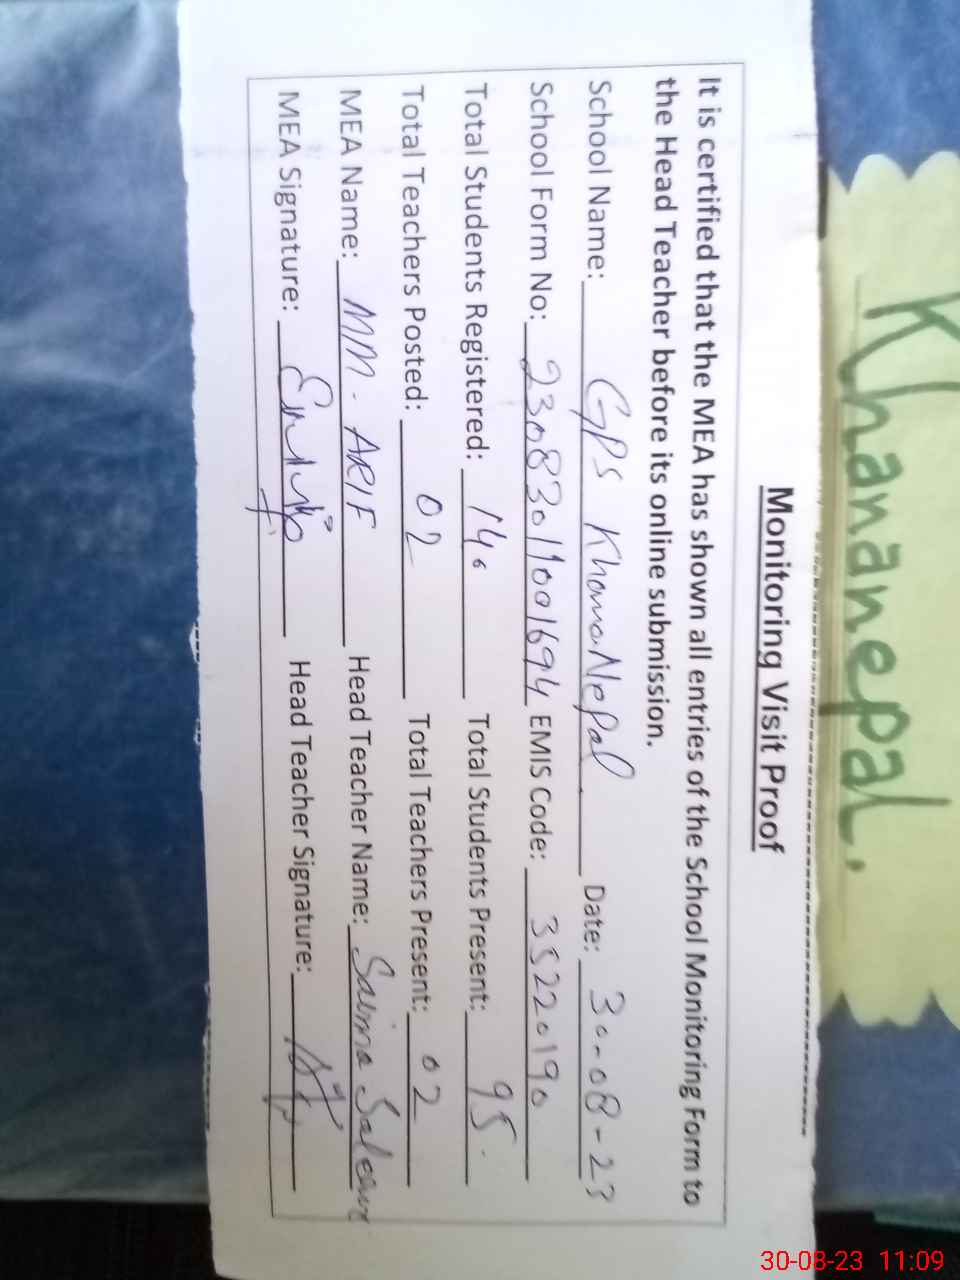 Khananepal.
Monitoring Visit Proof
It is certified that the MEA has shown all entries of the School Monitoring Form to
the Head Teacher before its online submission.
School Name: GPS Khana Nepal Date: 30-08-23
School Form No: 23083011001694 EMIS Code: 35220190
Total Students Registered: 140 Total Students Present: 95
Total Teachers Posted: 02 Total Teachers Present: 02
MEA Name: MM. ARIF Head Teacher Name: Saima Saleem
MEA Signature: Head Teacher Signature:
30-08-23 11:09